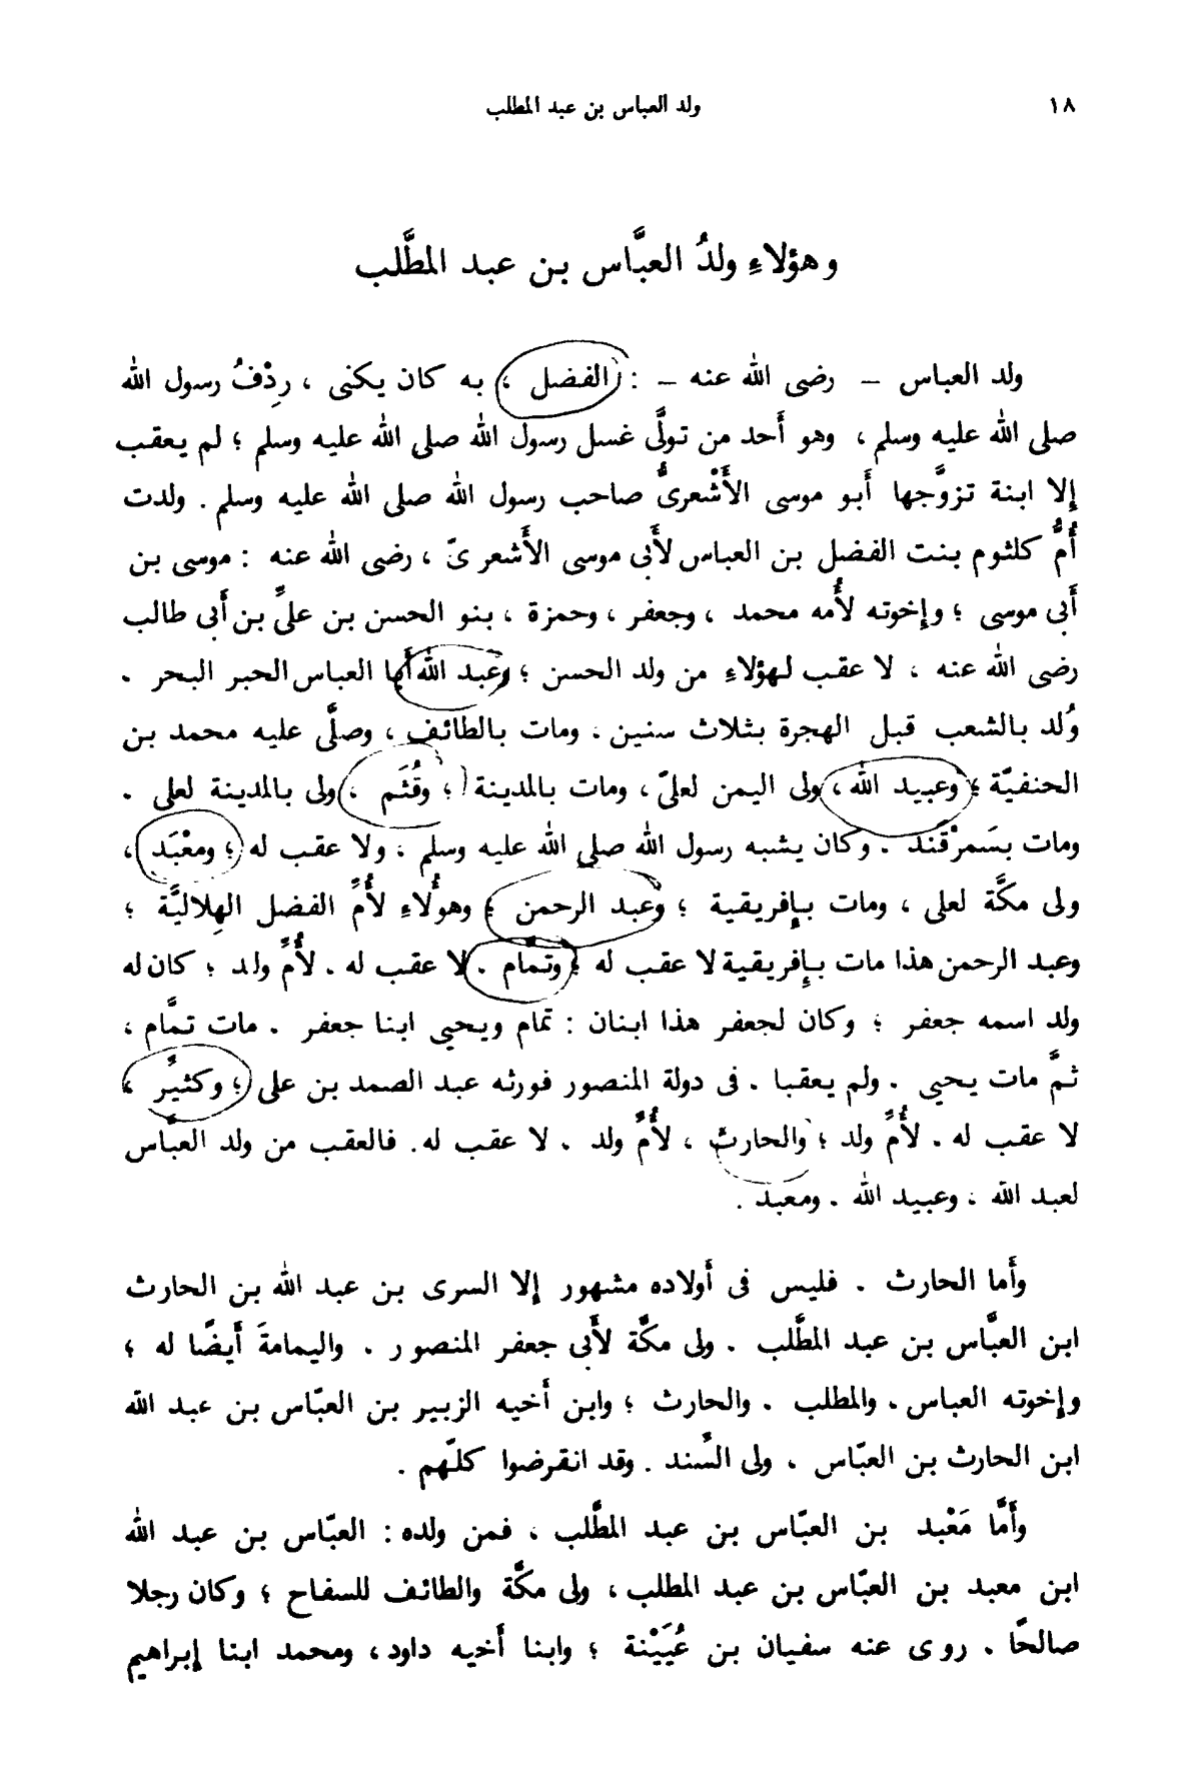 ١٨
ولد العباس بن عبد المطلب
وهؤلاءِ ولدُ العبَّاس بن عبد المطَّلب
ولد العباس – رضى الله عنه – : الفضل ، به كان يكنى ، ردْفُ رسول الله
صلى الله عليه وسلم ، وهو أَحد من تولَّى غسل رسول الله صلى الله عليه وسلم ؛ لم يعقب
إلا ابنة تزوَّجها أَبو موسى الأَشْعرىُّ صاحب رسول الله صلى الله عليه وسلم . ولدت
أُمُّ كلثوم بنت الفضل بن العباس لأَبى موسى الأَشعرىّ ، رضى الله عنه : موسى بن
أَبى موسى ؛ وإخوته لأُمه محمد ، وجعفر ، وحمزة ، بنو الحسن بن علىِّ بن أَبى طالب
رضى الله عنه ، لا عقب لهؤلاءِ من ولد الحسن ؛ وعبد الله أَبا العباس الحبر البحر .
وُلد بالشعب قبل الهجرة بثلاث سنين ، ومات بالطائف ، وصلَّى عليه محمد بن
الحنفيّة ؛ وعبيد الله ، ولى اليمن لعلىّ ، ومات بالمدينة ؛ وقُثَم ، ولى بالمدينة لعلى .
ومات بسَمرْقَند . وكان يشبه رسول الله صلى الله عليه وسلم ، ولا عقب له ؛ ومعْبَد ،
ولى مكَّة لعلى ، ومات بإفريقية ؛ وعبد الرحمن ؛ وهؤُلاءِ لأُمِّ الفضل الهِلاليَّة ؛
وعبد الرحمن هذا مات بإفريقية لا عقب له ؛ وتمام . لا عقب له . لأُمِّ ولد ؛ كان له
ولد اسمه جعفر ؛ وكان لجعفر هذا ابنان : تمام ويحيى ابنا جعفر . مات تمَّام ،
ثمَّ مات يحيى . ولم يعقبا . فى دولة المنصور فورثه عبد الصمد بن على ؛ وكثيُر ،
لا عقب له . لأُمِّ ولد ؛ والحارث ، لأُمِّ ولد . لا عقب له. فالعقب من ولد العبَّاس
لعبد الله ، وعبيد الله . ومعبد .
وأَما الحارث . فليس فى أَولاده مشهور إلا السرى بن عبد الله بن الحارث
ابن العبَّاس بن عبد المطَّلب . ولى مكَّة لأَبى جعفر المنصور . واليمامةَ أَيضًا له ؛
وإخوته العباس . والمطلب . والحارث ؛ وابن أَخيه الزبير بن العبّاس بن عبد الله
ابن الحارث بن العبّاس ، ولى السِّند . وقد انقرضوا كلّهم .
وأَمَّا مَعْبد بن العبّاس بن عبد المطَّلب ، فمن ولده : العبّاس بن عبد الله
ابن معبد بن العبّاس بن عبد المطلب ، ولى مكَّة والطائف للسفاح ؛ وكان رجلا
صالحًا . روى عنه سفيان بن عُيَيْنة ؛ وابنا أَخيه داود ، ومحمد ابنا إبراهيم